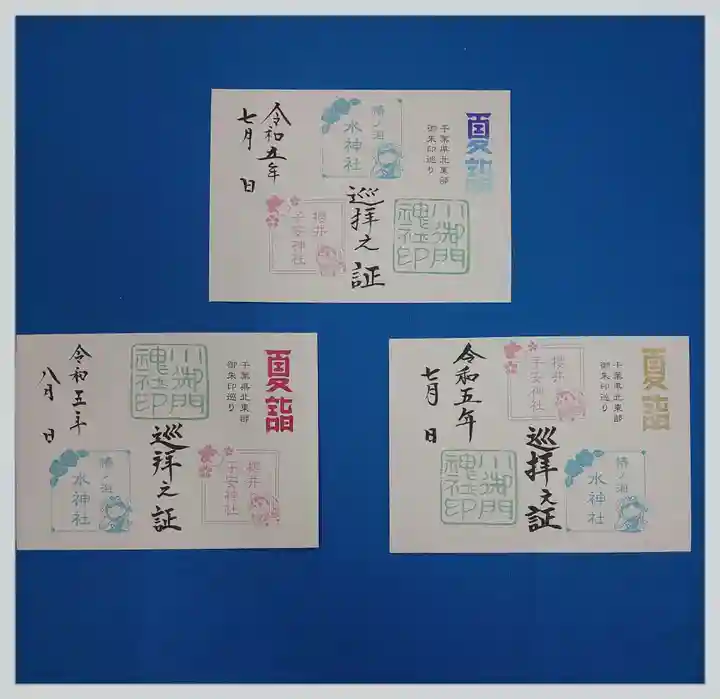 夏詣
千葉県北東部
御朱印巡り
椿ノ海
水神社
櫻井
子安神社
巡拝之証
川御門
神社印
令和五年
七月 日
夏詣
千葉県北東部
御朱印巡り
川御門
神社印
櫻井
子安神社
巡拝之証
椿ノ海
水神社
令和五年
八月 日
夏詣
千葉県北東部
御朱印巡り
櫻井
子安神社
椿ノ海
水神社
巡拝之証
川御門
神社印
令和五年
七月 日